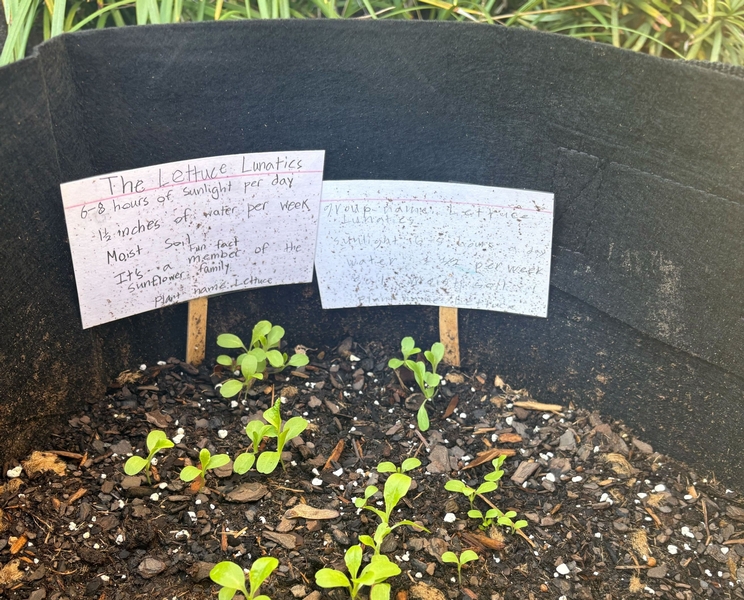 The Lettuce Lunatics
6-8 hours of sunlight per day
1½ inches of water per week
Moist Soil
Fun fact
It's a member of the
sunflower family
Plant name: Lettuce
Group name: Lettuce
Lunatics
Sunlight hours a day
water per week